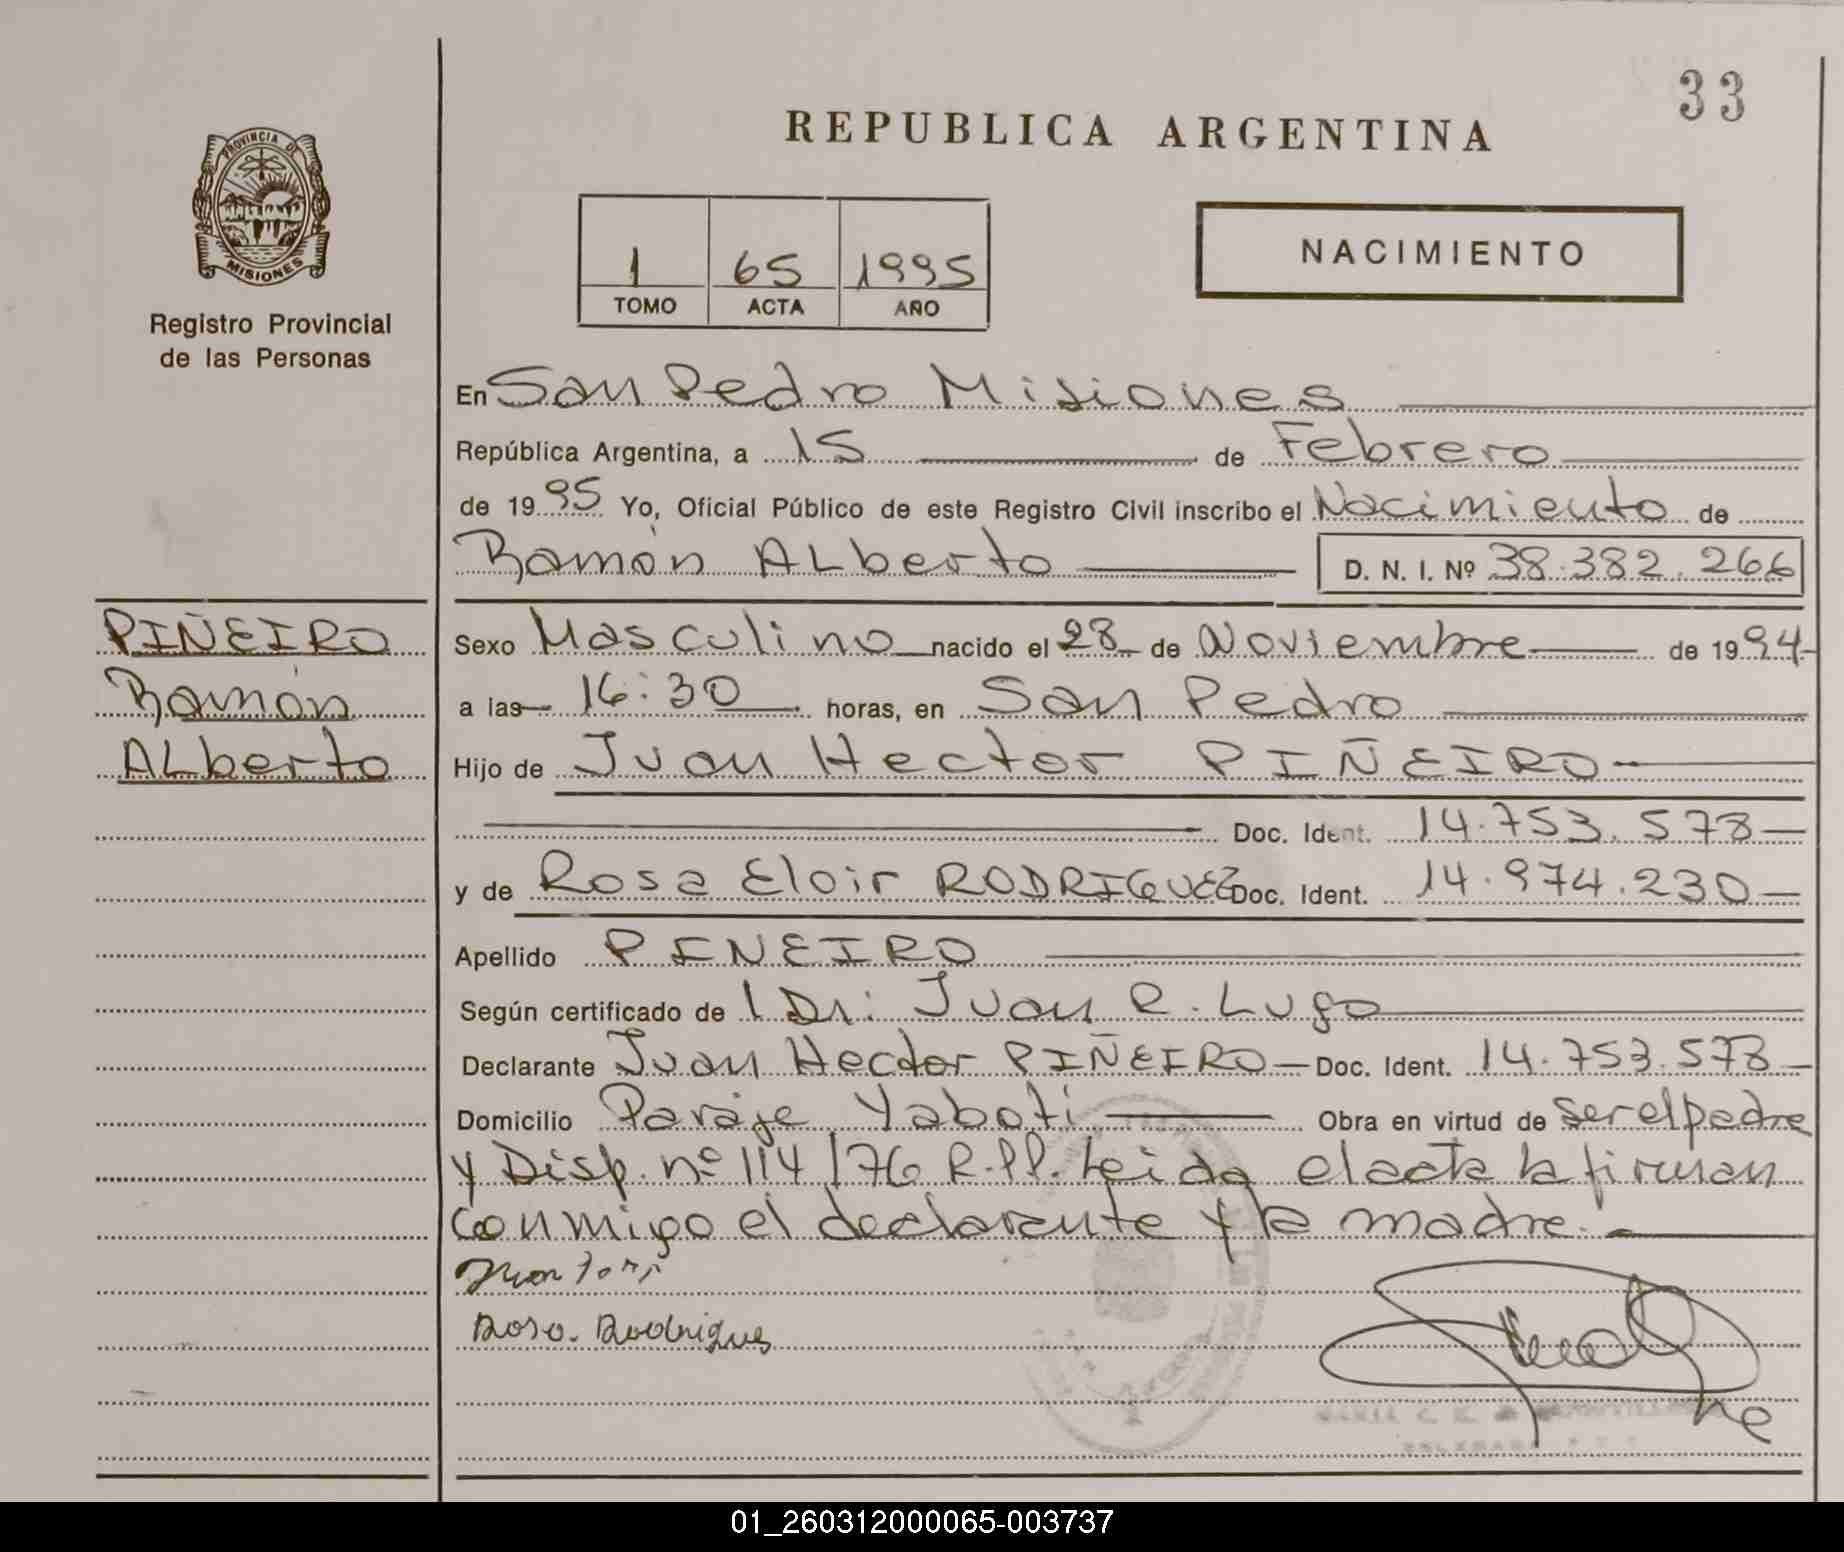 33
REPUBLICA ARGENTINA
PROVINCIA DE
MISIONES
Registro Provincial
de las Personas
1 65 1995
TOMO ACTA AÑO
NACIMIENTO
En San Pedro Misiones
República Argentina, a 15 de Febrero
de 1995 Yo, Oficial Público de este Registro Civil inscribo el Nacimiento de
Ramón ALberto D. N. I. Nº 38.382.266
PIÑEIRO
Ramón
ALberto
Sexo Masculino nacido el 28 de Noviembre de 1994
a las 16:30 horas, en San Pedro
Hijo de Juan Hector PIÑEIRO
Doc. Ident. 14.753.578
y de Rosa Eloir RODRIGUEZ Doc. Ident. 14.974.230
Apellido PIÑEIRO
Según certificado de 1 Dr: Juan R. Lugo
Declarante Juan Hector PIÑEIRO Doc. Ident. 14.753.578
Domicilio Paraje Yaboti Obra en virtud de ser el padre
y Disp. nº 114/76 R.PP. Leida el acta la firman
conmigo el declarante y la madre.
Rosa. Rodrigues
01_260312000065-003737